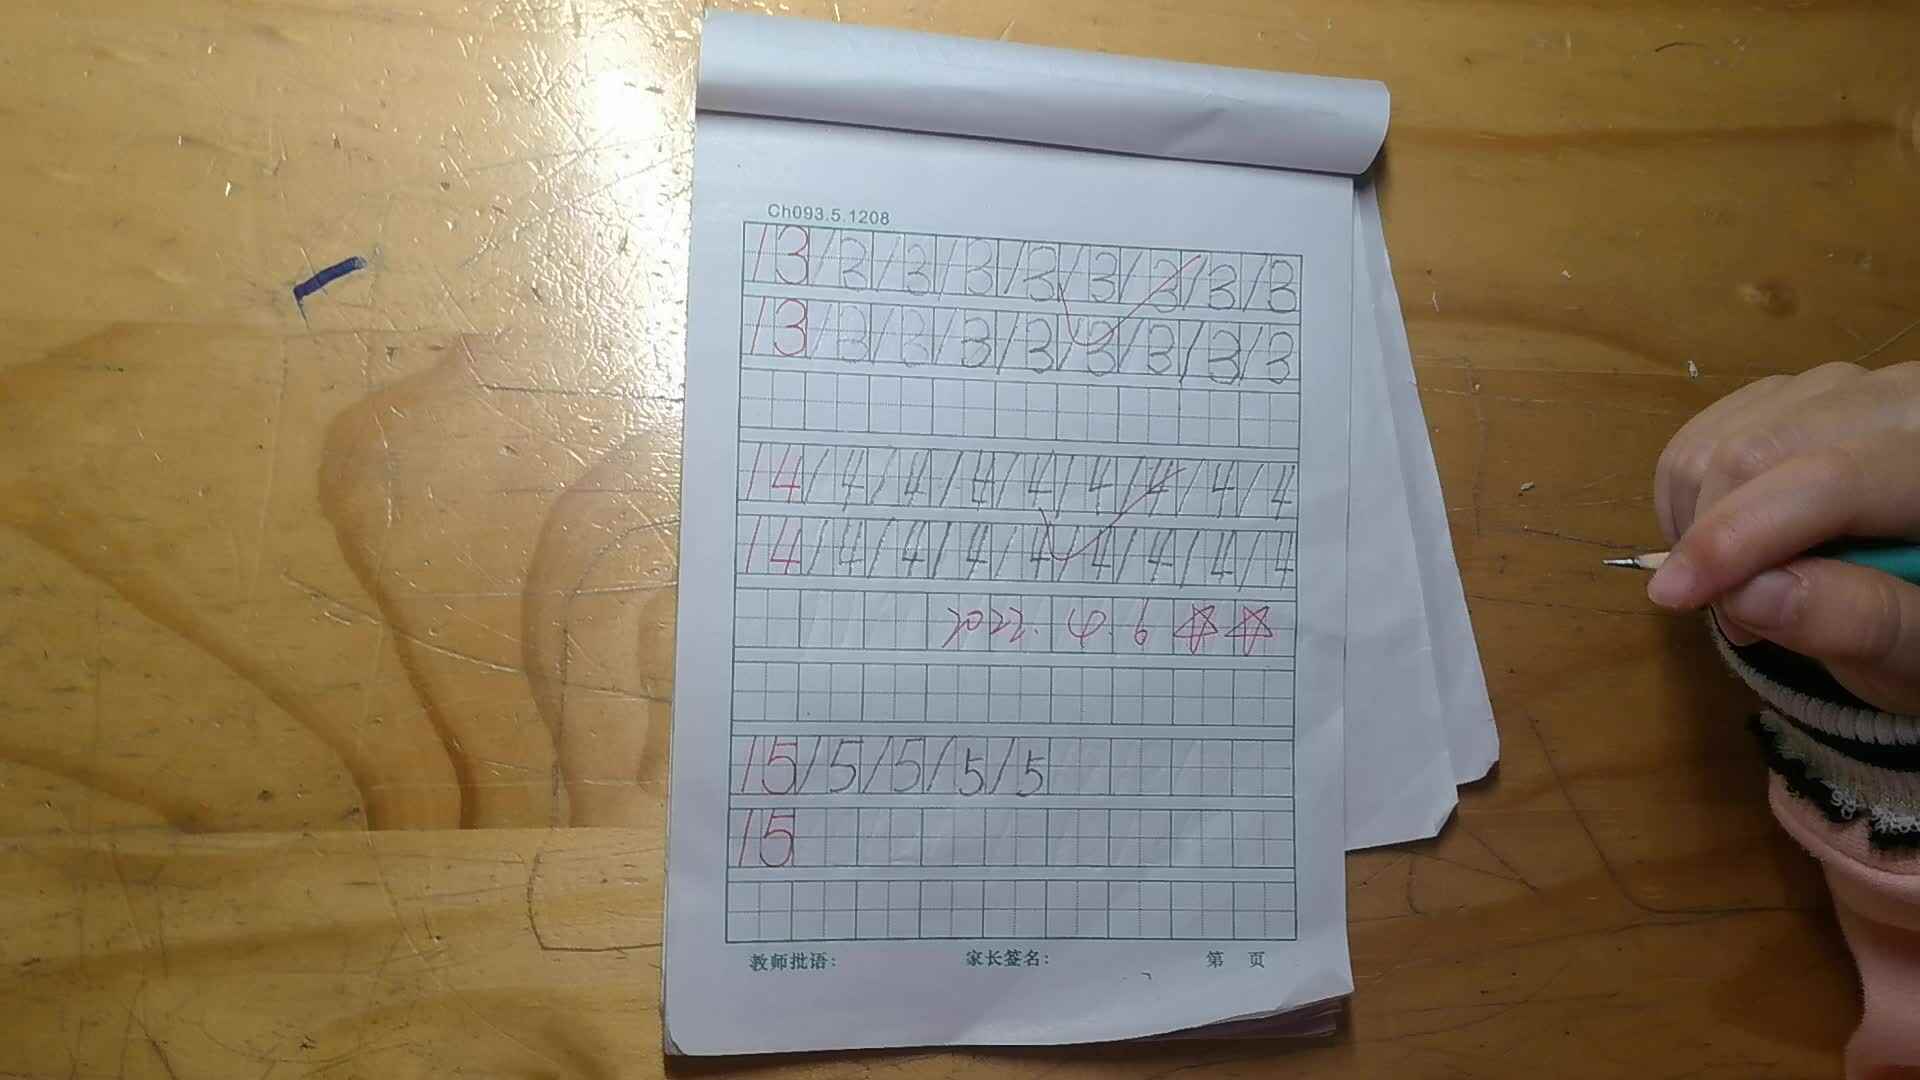 Ch093.5.1208
13 13 13 13 13 13 13 13 13
13 13 13 13 13 13 13 13 13
14 14 14 14 14 14 14 14 14
14 14 14 14 14 14 14 14 14
2022.4.6 ☆☆
15 15 15 15 15
15
教师批语: 家长签名: 第 页